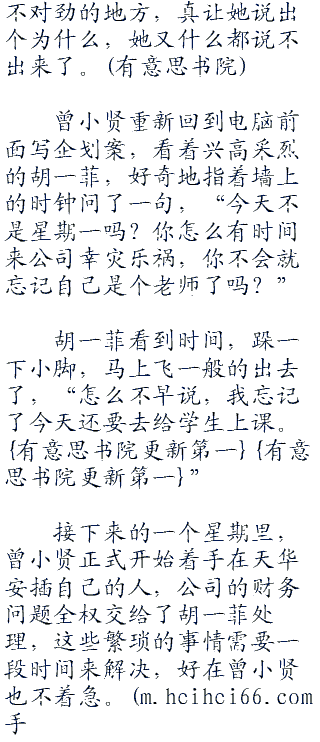 不对劲的地方，真让她说出
个为什么，她又什么都说不
出来了。(有意思书院)
曾小贤重新回到电脑前
面写企划案，看着兴高采烈
的胡一菲，好奇地指着墙上
的时钟问了一句，“今天不
是星期一吗？你怎么有时间
来公司幸灾乐祸，你不会就
忘记自己是个老师了吗？”
胡一菲看到时间，跺一
下小脚，马上飞一般的出去
了，“怎么不早说，我忘记
了今天还要去给学生上课。
{有意思书院更新第一}{有意
思书院更新第一}”
接下来的一个星期里，
曾小贤正式开始着手在天华
安插自己的人，公司的财务
问题全权交给了胡一菲处
理，这些繁琐的事情需要一
段时间来解决，好在曾小贤
也不着急。(m.hcihci66.com
手